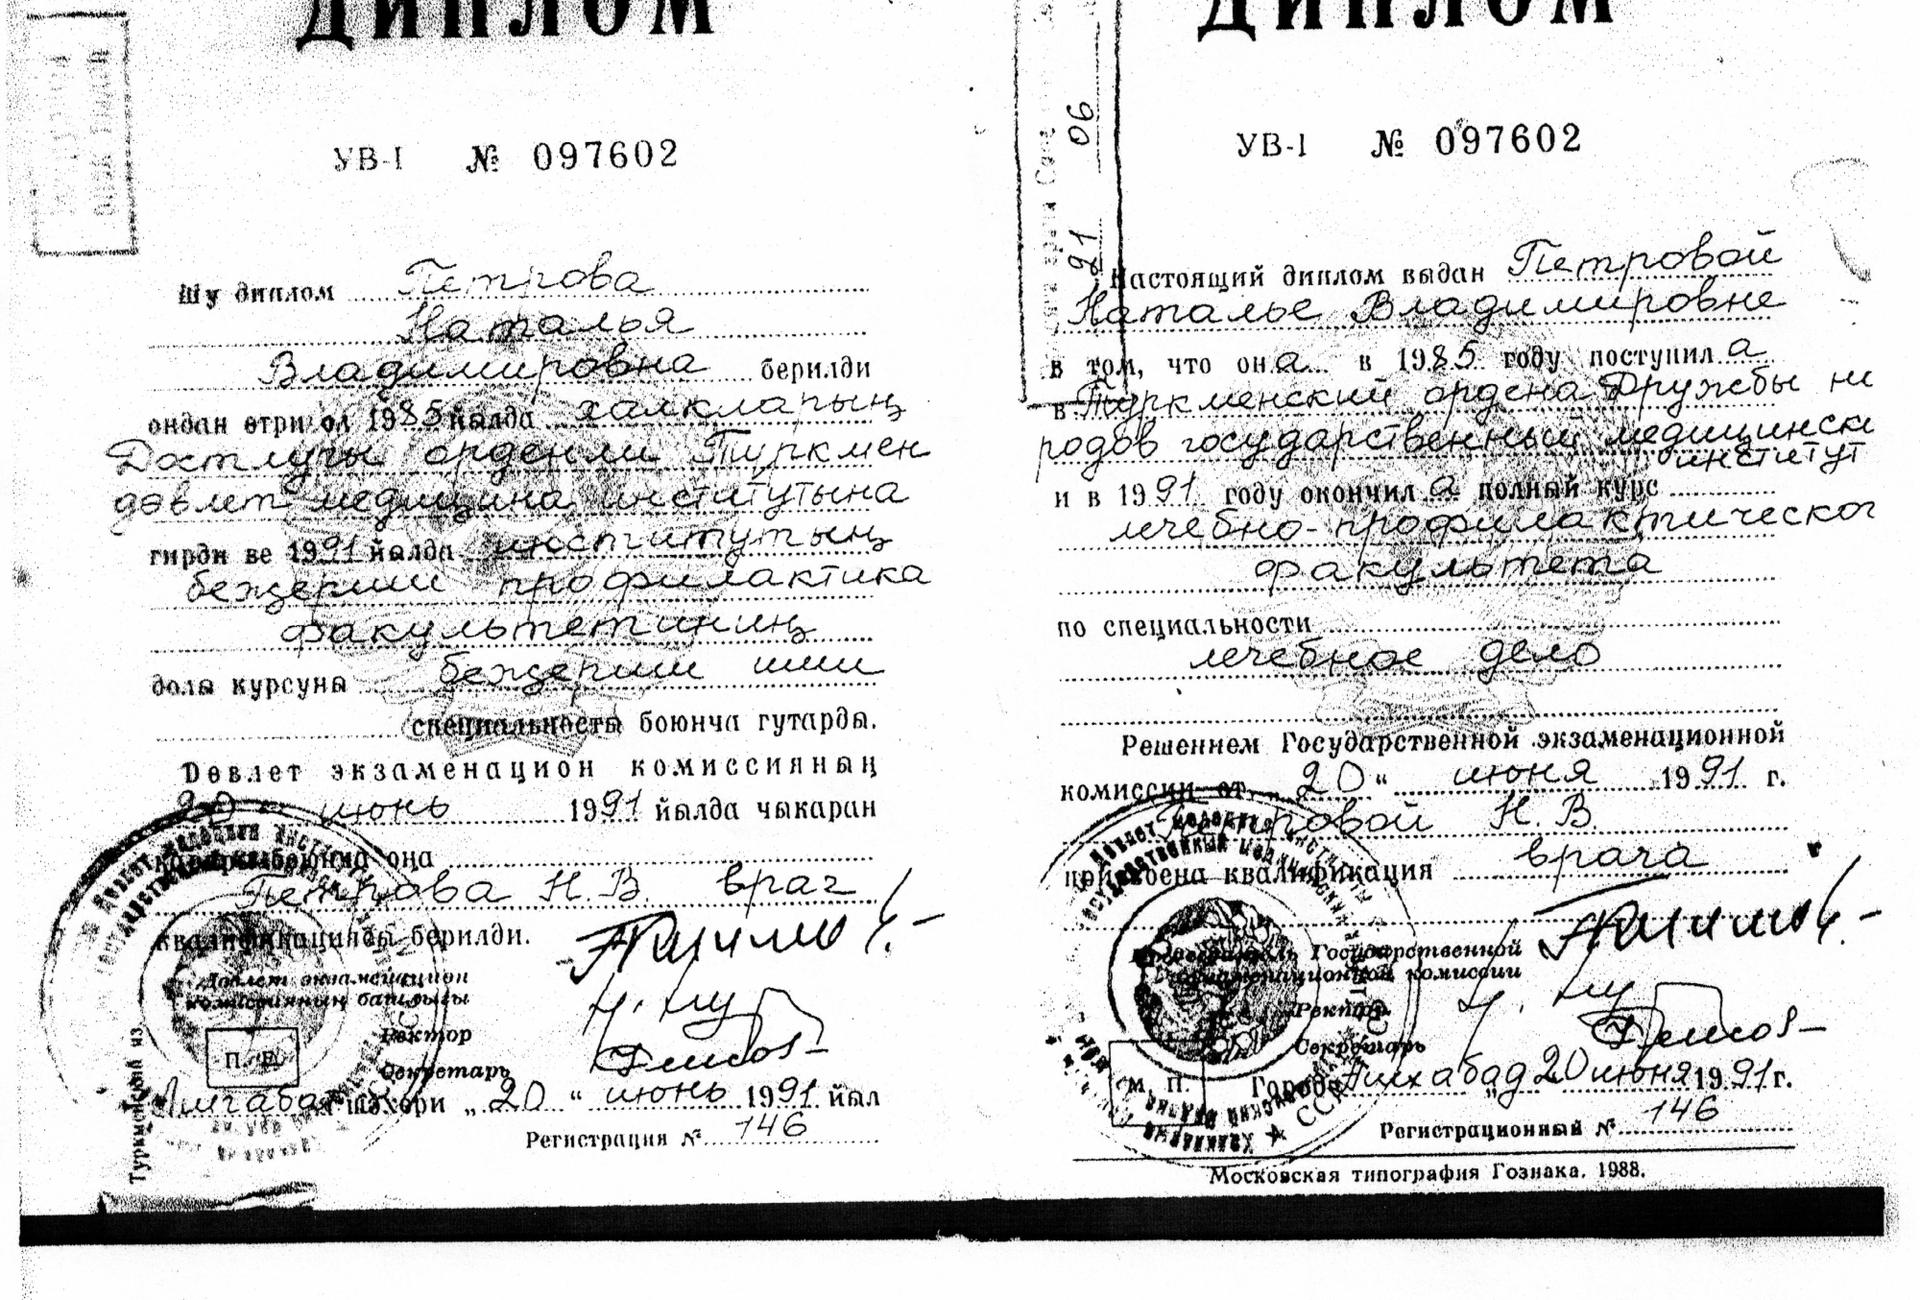 ДИПЛОМ
УВ-I № 097602
Шу диплом Петрова
Наталья
Владимировна берилди
ондан өтри ол 1985 йылда халкларың
Достлугы орденли Түркмен
дөвлет медицина институтына
гирди ве 1991 йылда институтың
бежериш профилактика
факультетиниң
долы курсуны бежериш иши
специальность боюнча гутарды.
Дөвлет экзаменацион комиссияның
20 июнь 1991 йылда чыкаран
карары боюнча оңа
Петрова Н.В. врач
квалификациясы берилди.
Дөвлет экзаменацион
комиссияның башлыгы
Ректор
П. Е.
Секретарь
Ашгабат шәхери „20“ июнь 1991 йыл
Регистрация № 146
ДИПЛОМ
УВ-I № 097602
91 06
Настоящий диплом выдан Петровой
Наталье Владимировне
в том, что она в 1985 году поступила
в Туркменский ордена Дружбы на
родов государственный медицински
институт
и в 1991 году окончила полный курс
лечебно-профилактическог
факультета
по специальности
лечебное дело
Решением Государственной экзаменационной
комиссии от „20“ июня 1991 г.
Петровой Н.В.
присвоена квалификация врача
Председатель Государственной
экзаменационной комиссии
Ректор
Секретарь
М. П. Город Ашхабад 20 июня 1991 г.
Регистрационный № 146
Московская типография Гознака. 1988.